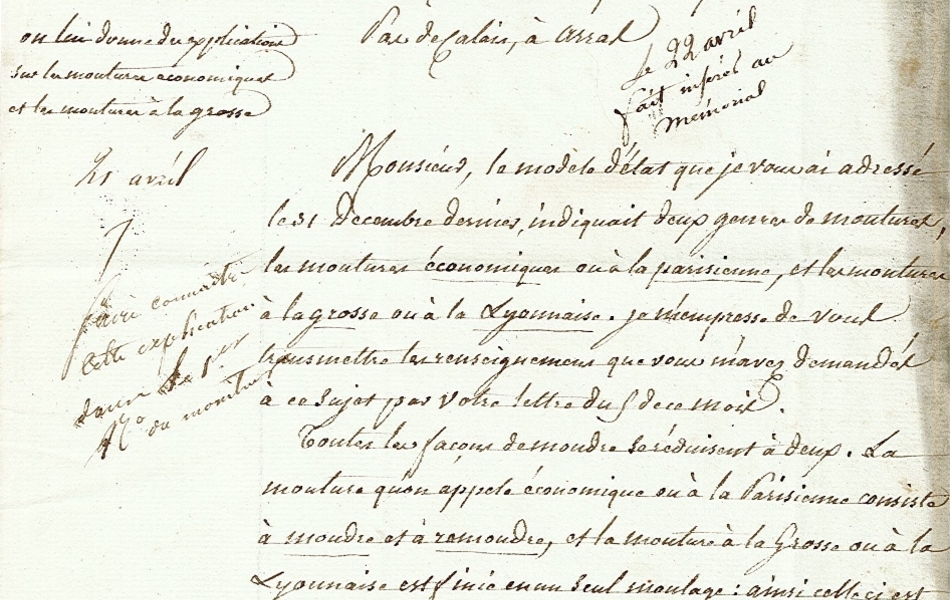 on lui donne des explications
sur les moutures economiques
et les moutures à la grosse
Pas de Calais, à Arras
le 22 avril
fait insérés au
Mémorial
21 avril
faire connaître
cette explication
dans le 1er
No du
Monsieur, le modèle d'état que je vous ai adressé
le 31 Décembre dernier, indiquait deux genres de moutures,
les moutures économiques ou à la parisienne, et les moutures
à la grosse ou à la Lyonnaise. je m'empresse de vous
transmettre les renseignemens que vous m'avez demandés
à ce sujet par votre lettre du 5 de ce mois.
Toutes les façons de moudre se réduisent à deux. La
mouture qu'on appele économique ou à la Parisienne consiste
à moudre et à remoudre, et la mouture à la Grosse ou à la
Lyonnaise est finie en un seul moulage : ainsi celle ci est